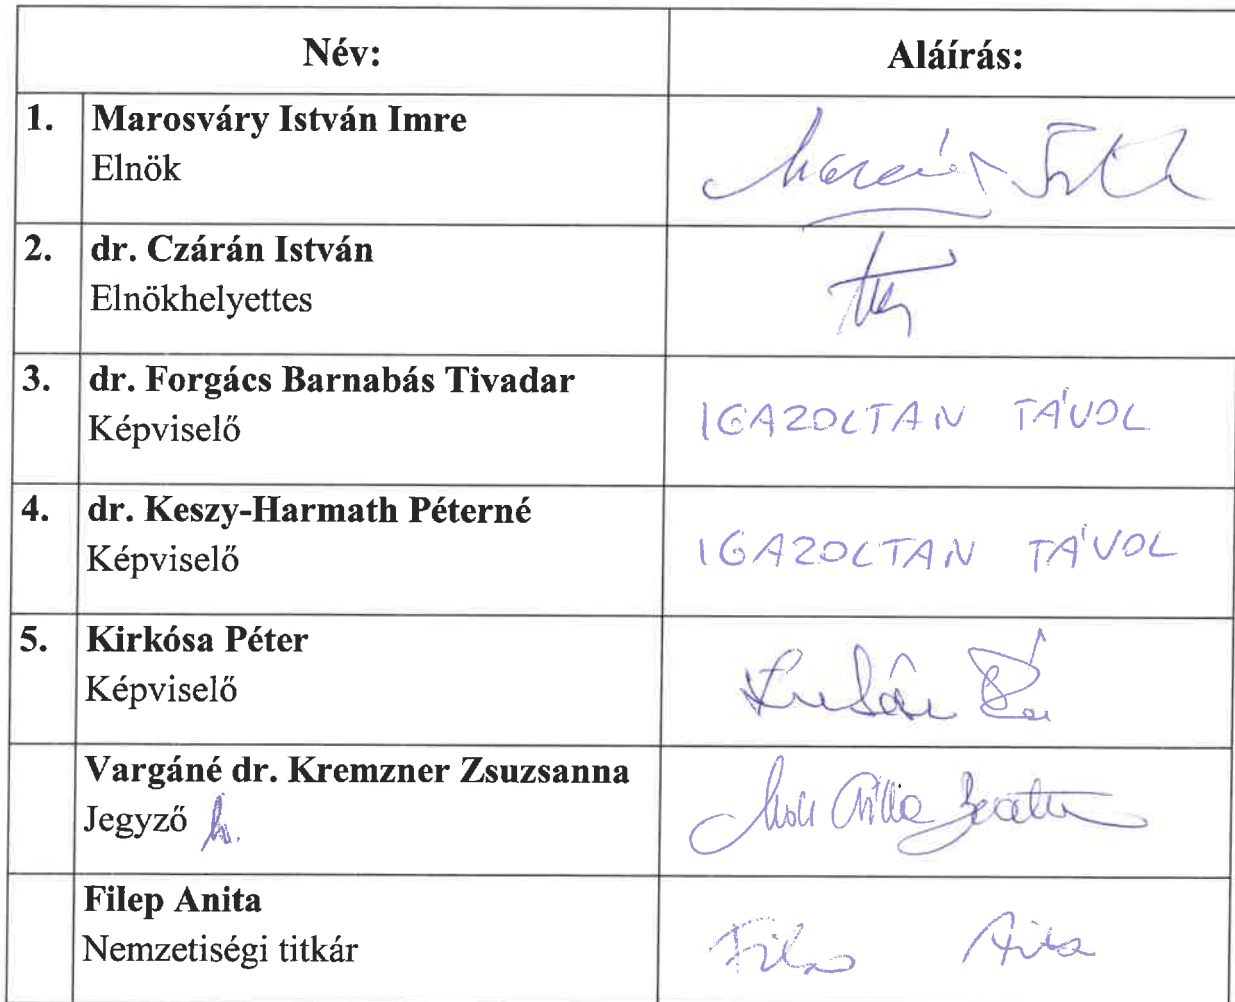 Név: Aláírás:
1. Marosváry István Imre
Elnök
2. dr. Czárán István
Elnökhelyettes
3. dr. Forgács Barnabás Tivadar
Képviselő
IGAZOLTAN TÁVOL
4. dr. Keszy-Harmath Péterné
Képviselő
IGAZOLTAN TÁVOL
5. Kirkósa Péter
Képviselő
Vargáné dr. Kremzner Zsuzsanna
Jegyző
Filep Anita
Nemzetiségi titkár